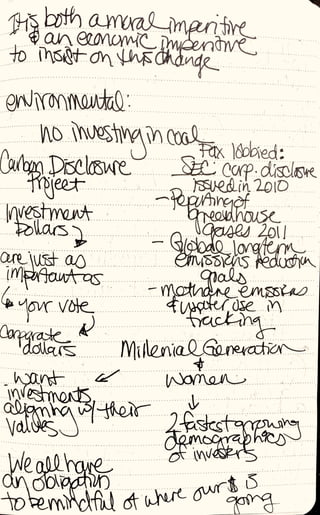 It is both a moral imperitive
& an economic imperitive
to insist on this change
environmental:
no investing in coal
Carbon Disclosure
Project
Investment
Dollars
are just as
important as
your vote
Corporate
dollars
Pax lobbied:
SEC corp. disclosure
issued in 2010
- Reporting of
greenhouse
gases 2011
- Global longterm
emissions reduction
goals
- methane emissions
& water use in
tracking
Millenial Generation
&
women
want
investments
aligning w/ their
values
2 fastest growing
demographics
of investers
We all have
an obligation
to be mindful of where our $ is
going